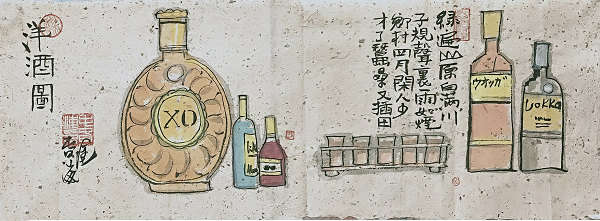 綠遍山原白满川
子規聲裏雨如煙
鄉村四月閑人少
才了蠶桑又插田
ウオッカ
Uokka
XO
洋酒圖